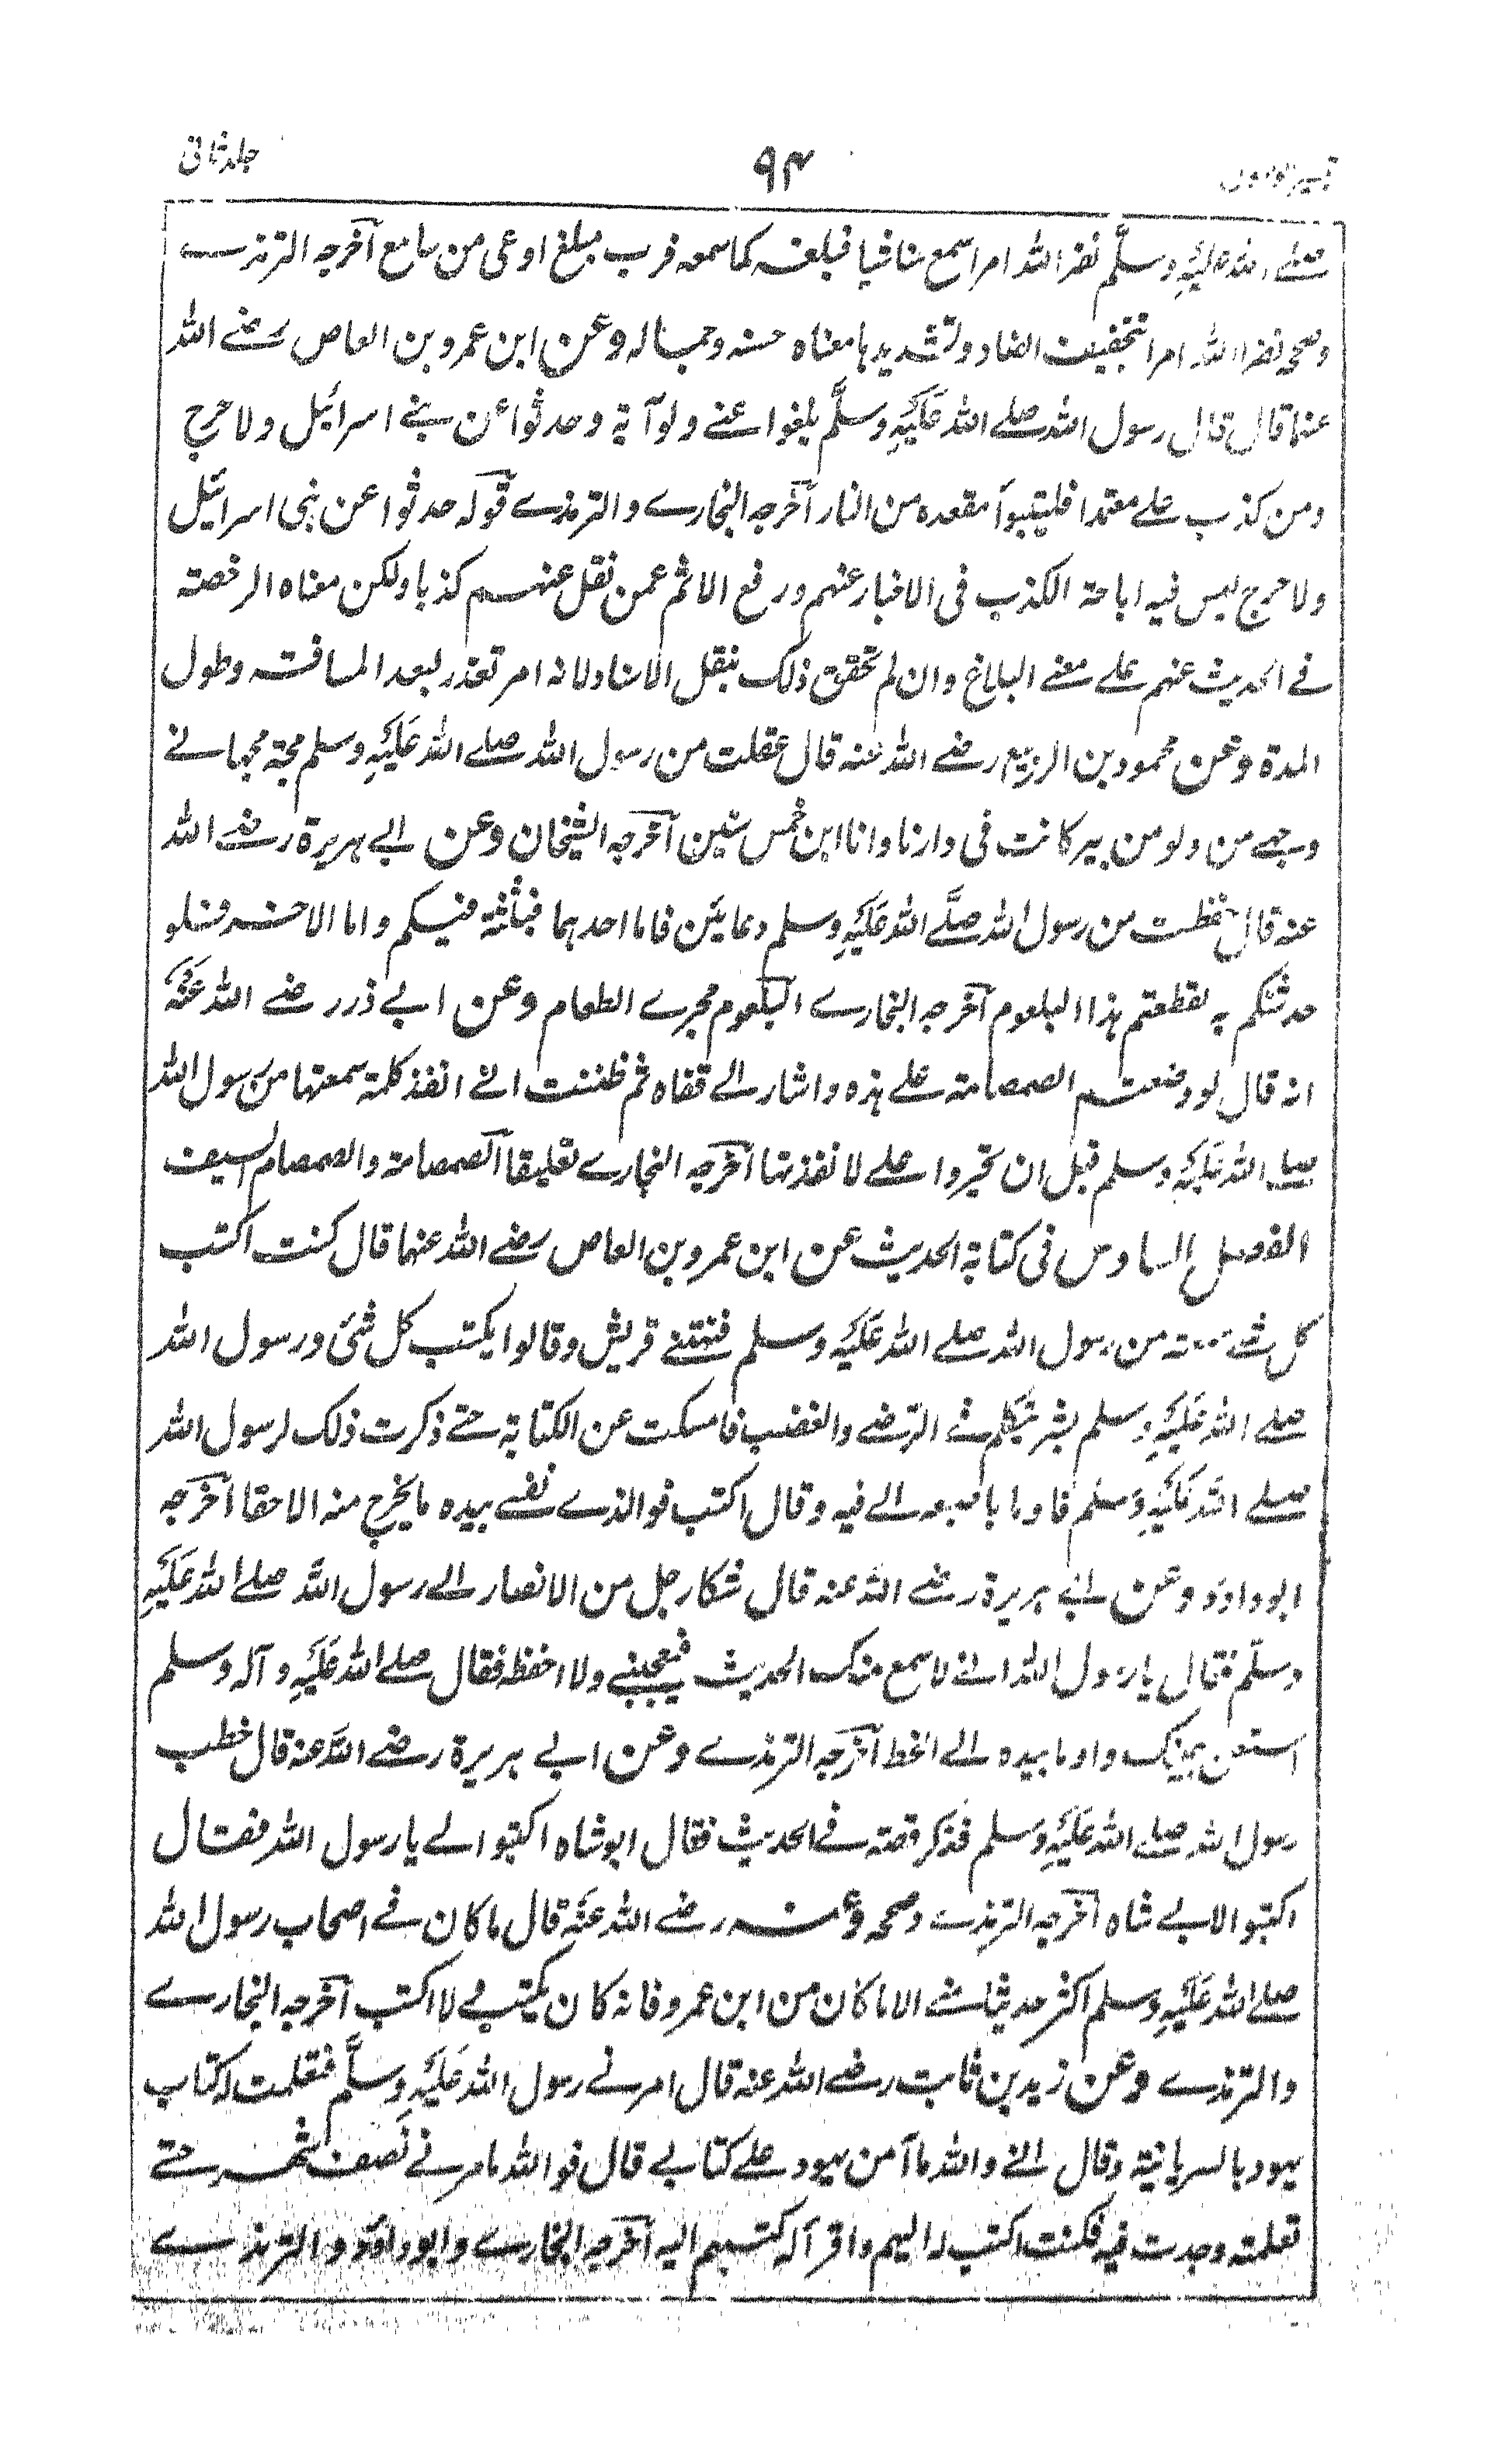 جلد ثانی
۹۴
صلے الله عَلَيْهِ وسلَّم نضر الله امرا سمع منا شيا فبلغه كما سمعه فرب مبلغ اوعى من سامع آخرجه الترمذے
وصححه نضر الله امرا بتخفيف الضاد وتشديدها معناه حسنه وجماله وعن ابن عمرو بن العاص رضے الله
عنهما قال قال رسول الله صلے الله عَلَيْهِ وسلَّم بلغوا عنے ولو آية وحدثوا عن بنے اسرائيل ولا حرج
ومن كذب علے متعمدا فليتبوأ مقعده من النار آخرجه البخارے والترمذے قوله حدثوا عن بنی اسرائيل
ولا حرج ليس فيه اباحة الكذب فی الاخبار عنهم ورفع الاثم عمن نقل عنهم كذبا ولكن معناه الرخصة
فے الحديث عنهم علے معنے البلاغ وان لم تحقق ذلك بنقل الاسناد لانه امر تعذر لبعد المسافة وطول
المدة وعن محمود بن الربيع رضے الله عنه قال عقلت من رسول الله صلے الله عَلَيْهِ وسلم مجة مجها فے
وجهے من دلو من بير كانت فی دارنا وانا ابن خمس سنين آخرجه الشيخان وعن ابے هريرة رضے الله
عنه قال حفظت من رسول الله صلَّے الله عَلَيْهِ وسلم دعايَن فاما احدهما فبثثته فيكم واما الاخر فلو
حدثتكم به لقطعتم هذا البلعوم آخرجه البخارے البلعوم مجرے الطعام وعن ابے ذر رضے الله عَنْهُ
انه قال لو وضعتم الصمصامة علے هذه واشار الے قفاه ثم ظننت انے انفذ كلمة سمعتها من رسول الله
صلے الله عَلَيْهِ وسلم قبل ان تجيزوا علے لانفذتها آخرجه البخارے تعليقا الصمصامة والصمصام السيف
الفصل السادس فی كتابة الحديث عن ابن عمرو بن العاص رضے الله عنهما قال كنت اكتب
كل شے من رسول الله صلے الله عَلَيْهِ وسلم فنهتنے قريش وقالوا يكتب كل شئ ورسول الله
صلے الله عَلَيْهِ وسلم بشر يتكلم فے الرضے والغضب فامسكت عن الكتابة حتے ذكرت ذلك لرسول الله
صلے الله عَلَيْهِ وَسلم فاوما باصبعه الے فيه وقال اكتب فو الذے نفسے بيده ما يخرج منه الا حقا آخرجه
ابو داوَد وعن ابے هريرة رضے الله عنه قال شكا رجل من الانصار الے رسول الله صلے الله عَلَيْهِ
وسلَّم فقال يا رسول الله انے لاسمع منك الحديث فيعجبنے ولا احفظه فقال صلے الله عَلَيْهِ وآله وسلم
استعن بيمينك واوما بيده الے الخط آخرجه الترمذے وعن ابے هريرة رضے الله عنه قال خطب
رسول الله صلے الله عَلَيْهِ وَسلم فذكر قصته فے الحديث فقال ابو شاه اكتبوا لے يا رسول الله فقال
اكتبوا لابے شاه آخرجه الترمذے وصححه وعنه رضے الله عَنْهُ قال ما كان فے اصحاب رسول الله
صلے الله عَلَيْهِ وسلم اكثر حديثا منے الا ما كان من ابن عمرو فانه كان يكتب ولا اكتب آخرجه البخارے
والترمذے وعن زيد بن ثابت رضے الله عنه قال امرنے رسول الله عَلَيْهِ وسلَّم فتعلمت له كتاب
يهود بالسريانية وقال انے والله ما آمن يهود علے كتابے قال فوالله ما مر بے نصف شهر حتے
تعلمته وجدت فيه فكنت اكتب له اليهم واقرأ له كتبهم اليه آخرجه البخارے وابو داوَد والترمذے